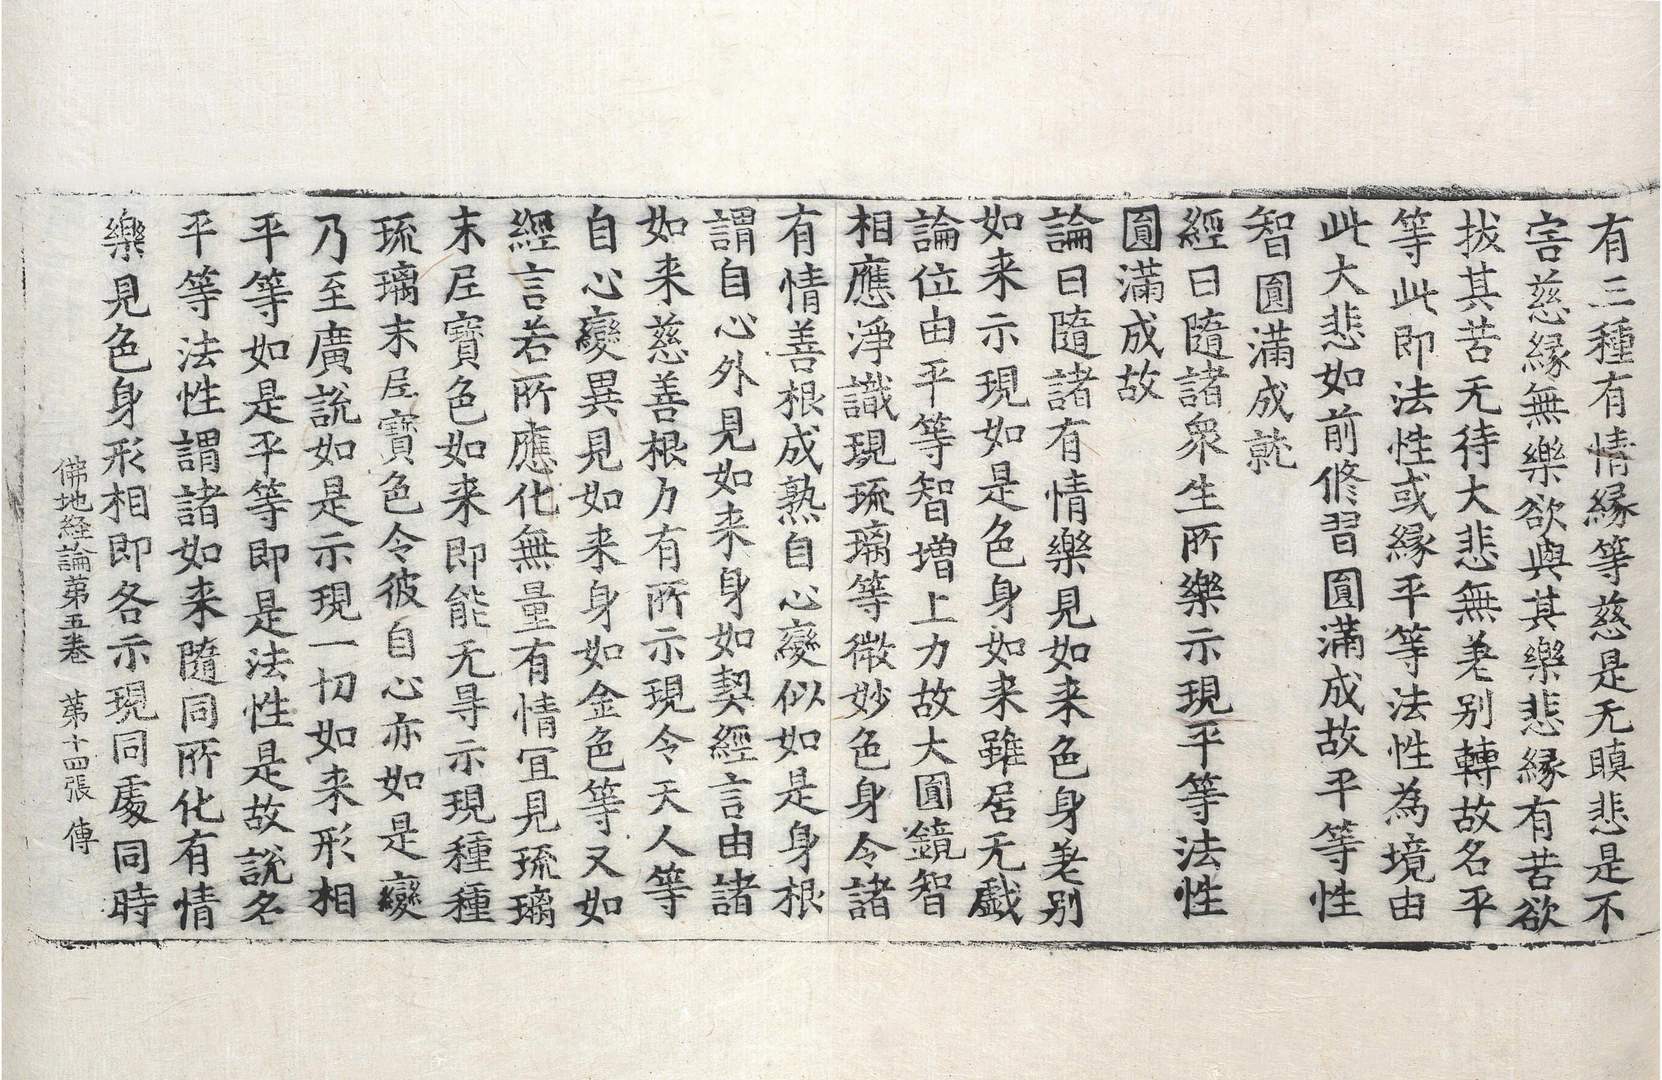 有三種有情縁等慈是无瞋悲是不
害慈縁無樂欲與其樂悲縁有苦欲
拔其苦无待大悲無差别轉故名平
等此即法性或縁平等法性為境由
此大悲如前修習圎滿成故平等性
智圎滿成就
經曰隨諸衆生所樂示現平等法性
圎滿成故
論曰隨諸有情樂見如来色身差别
如来示現如是色身如来雖居无戲
論位由平等智增上力故大圎鏡智
相應淨識現琉璃等微妙色身令諸
有情善根成熟自心變似如是身根
謂自心外見如来身如契經言由諸
如来慈善根力有所示現令天人等
自心變異見如来身如金色等又如
經言若所應化無量有情冝見琉璃
末尼寶色如来即能无㝵示現種種
琉璃末尼寶色令彼自心亦如是變
乃至廣說如是示現一切如来形相
平等如是平等即是法性是故說名
平等法性謂諸如来隨同所化有情
樂見色身形相即各示現同處同時
佛地経論苐五卷 苐十四張 傳